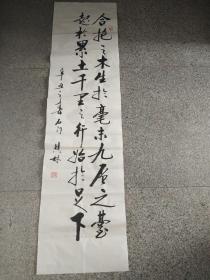 合抱之木生於毫末九层之臺
起於累土千里之行始於足下
辛丑之春